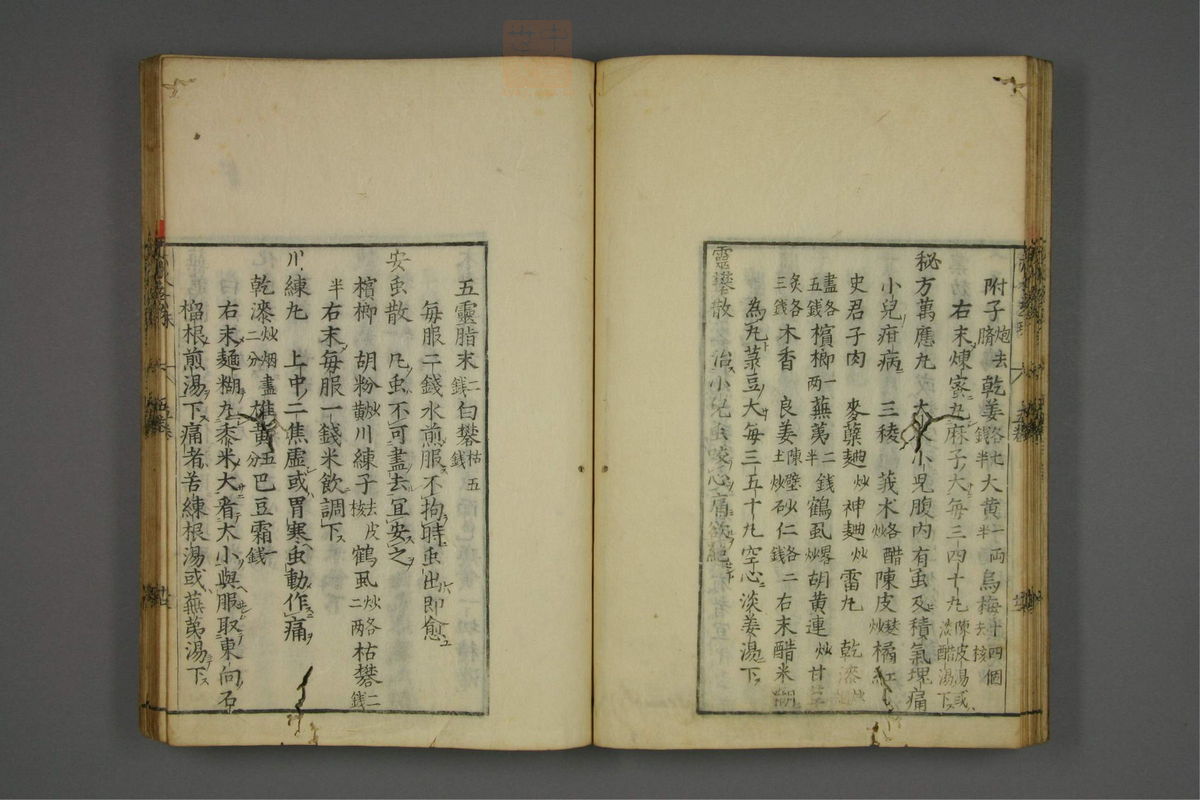 附子炮去臍 乾姜各七錢半 大黄一両半 烏梅十四個去核
右末煉蜜丸麻子大毎三四十丸陳皮湯或淡醋湯下
秘方萬應丸 大人小児腹内有虫及積氣塊痛
小兒疳病 三稜 莪朮各醋炒 陳皮 橘紅
史君子肉 麥蘗麯炒 神麯炒 雷丸 乾漆炒
盡各五錢 檳榔一両 蕪荑二錢半 鶴虱畧炒 胡黄連炒
炙各三錢 木香 良姜陳壁土炒 砂仁各二錢 右末醋米糊
為丸菉豆大毎三五十丸空心淡姜湯下
靈礬散 治小兒虫咬心痛欲絶
五靈脂末二錢 白礬枯五錢
毎服二錢水煎服不拘時虫出即愈
安虫散 凡虫不可盡去宜安之
檳榔 胡粉炒黄 川練子去皮核 鶴虱炒各二両 枯礬二錢
半右末毎服一錢米飲調下
川練丸 上中二焦虚或胃寒虫動作痛
乾漆炒烟盡二分 雄黄五分 巴豆霜一錢
右末麺糊丸黍米大看大小與服取東向石
榴根煎湯下痛者苦練根湯或蕪荑湯下